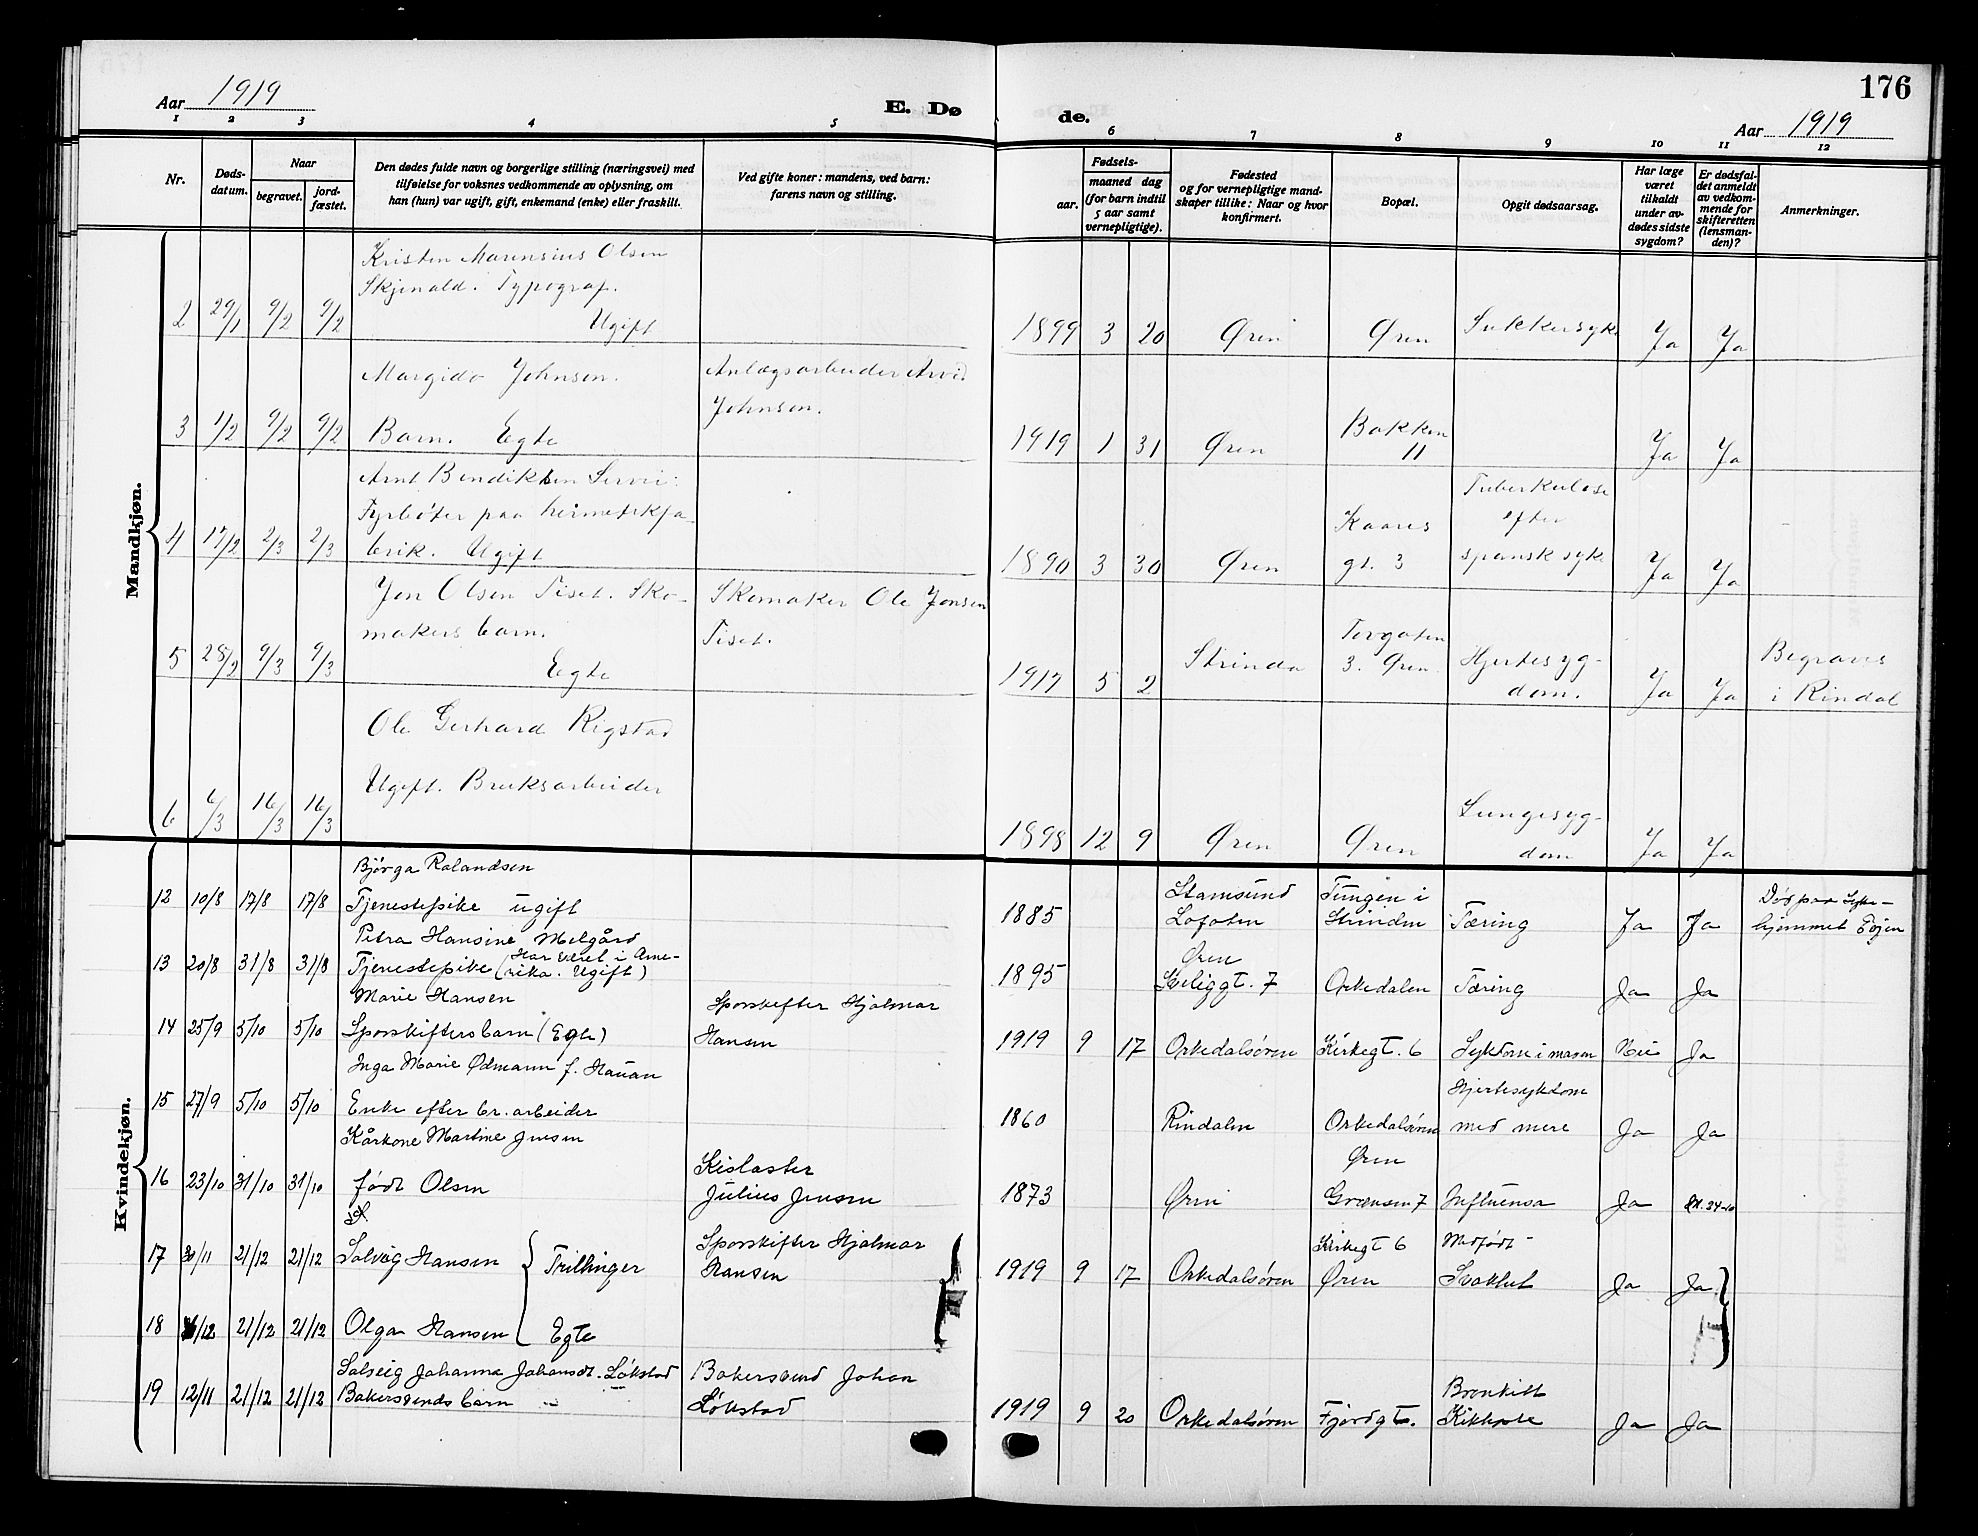 176
Aar 1919
E. Dø
de.
Aar 1919
1 2 3 4 5 6 7 8 9 10 11 12
Nr.
Døds-
datum.
Naar
begravet.
jord-
fæstet.
Den dødes fulde navn og borgerlige stilling (næringsvei) med
tilføielse for voksnes vedkommende av oplysning, om
han (hun) var ugift, gift, enkemand (enke) eller fraskilt.
Ved gifte koner: mandens, ved barn:
farens navn og stilling.
Fødsels-
aar.
maaned dag
(for barn indtil
5 aar samt
vernepligtige).
Fødested
og for vernepligtige mand-
skaper tillike: Naar og hvor
konfirmert.
Bopæl.
Opgit dødsaarsag.
Har læge
været
tilkaldt
under av-
dødes sidste
sygdom?
Er dødsfal-
det anmeldt
av vedkom-
mende for
skifteretten
(lensman-
den)?
Anmerkninger.
Mandkjøn.
Kristen Marensius Olsen
Skjenald. Typograf.
2 29/1 9/2 9/2 Ugift 1899 3 20 Øren Øren Sukkersyke Ja Ja
Margido Johnsen. Anlægsarbeider Arvid
Johnsen.
3 1/2 9/2 9/2 Barn. Egte 1919 1 31 Øren Bakken
11 Ja Ja
Arnt Bendiksen
Fyrbøter paa hermetikfa-
4 17/2 2/3 2/3 brik. Ugift 1890 3 30 Øren Kaares
gt. 3 Tuberkulose
efter
spansk syke Ja Ja
Jon Olsen Tiset. Sko-
makers barn. Skomaker Ole Jonsen
Tiset.
5 28/2 9/3 9/3 Egte 1917 5 2 Strinda Torgaten
3. Øren Hjertesyg-
dom. Ja Ja Begraves
i Rindal
Ole Gerhard Rigstad
Ugift. Bruksarbeider
6 6/3 16/3 16/3 1898 12 9 Øren Øren Lungesyg-
dom Ja Ja
Kvindekjøn.
Bjørga Rolandsen
12 10/8 17/8 17/8 Tjenestepike ugift 1885 Stamsund
Lofoten Tungen i
Strinden Tæring Ja Ja Død paa Syke-
hjemmet
Petra Hansine Melgård
13 20/8 31/8 31/8 Tjenestepike (Har været i Ame-
rika. Ugift) 1895 Øren
7 Orkedalen Tæring Ja Ja
Marie Hansen
14 25/9 5/10 5/10 Sporskifters barn (Egte) Sporskifter Hjalmar
Hansen 1919 9 17 Orkedalsøren Kirkegt. 6 Sykdom i maven Nei Ja
Inga Marie Ødmann f. Hauan
15 27/9 5/10 5/10 Enke efter br. arbeider 1860 Rindalen Orkedalsøren Hjertesykdom
med mere Ja Ja
Kårkone Martine Jensen
16 23/10 31/10 31/10 født Olsen Kislaster
Julius Jensen 1873 Øren Øren
Grænsen 7 Influensa Ja 24-10
17 30/11 21/12 21/12 Solveig Hansen Trillinger Sporskifter Hjalmar
Hansen 1919 9 17 Orkedalsøren Kirkegt 6
Øren Medfødt
Svakhet Ja Ja
18 21/12 21/12 Olga Hansen Egte
Solveig Johanna Johansdt. Løkstad
19 12/11 21/12 21/12 Bakersvends barn Bakersvend Johan
Løkstad 1919 9 20 Orkedalsøren Fjordgt. Bronkitt
Kikhoste Ja Ja